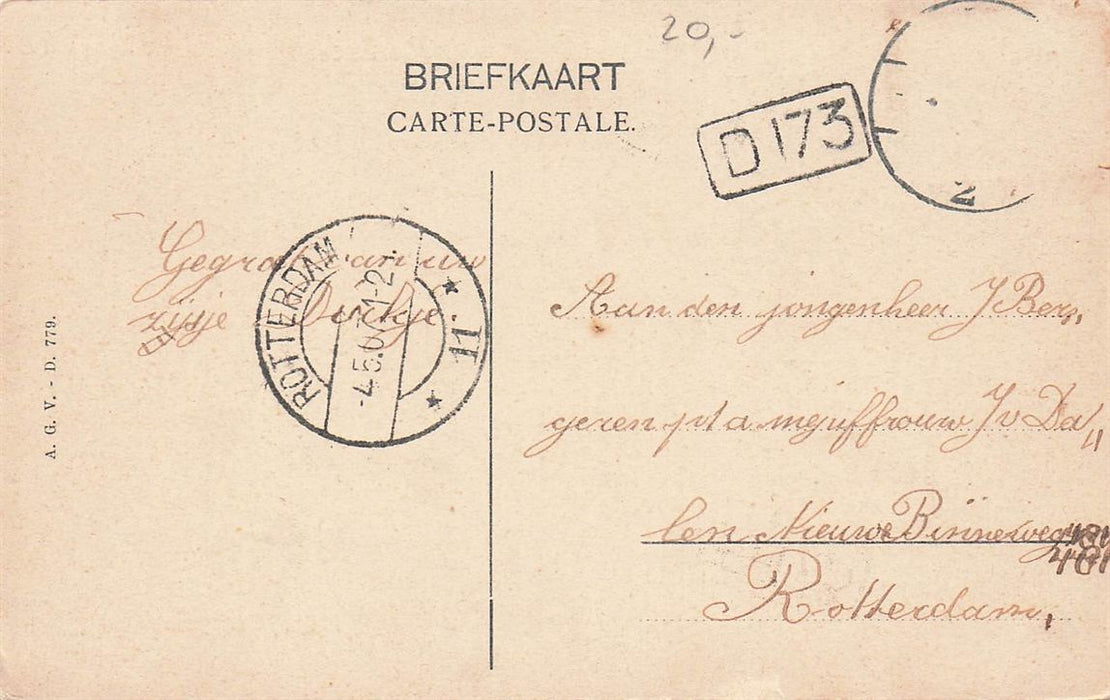 20,-
BRIEFKAART
CARTE-POSTALE.
D 173
2
ROTTERDAM
-4.5.07.1-2
11
van uw
zusje Dirkje.
A. G. V. - D. 779.
Aan den jongenheer J Ber„
geren p/a mejuffrouw J v Da„
len Nieuwe Binneweg 481
481
Rotterdam,